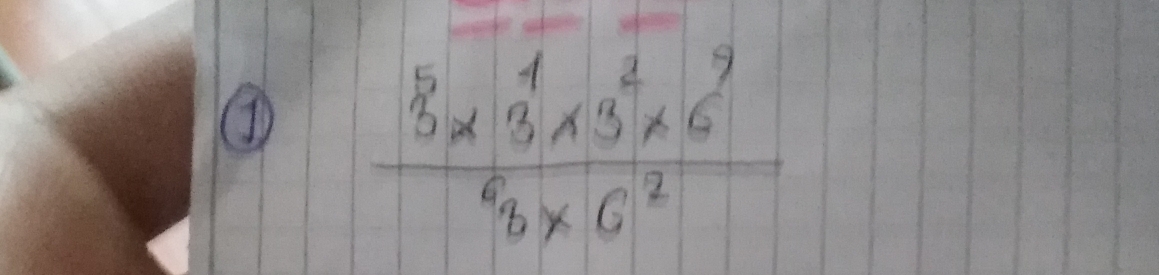 1
3⁵ × 3¹ × 3² × 6⁹
⁶3 × 6²